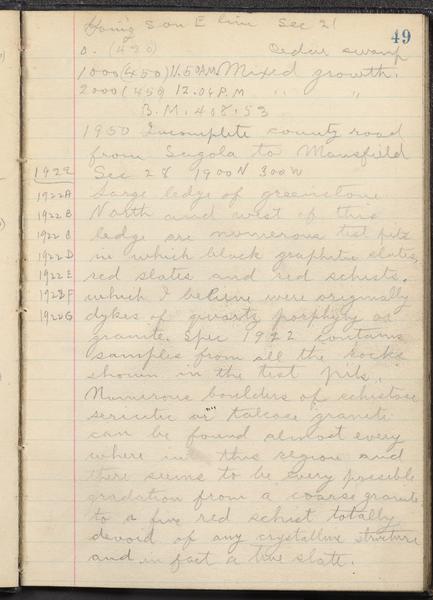 Going S on E line Sec 21
49
0. (430) Cedar swamp
1000 (450) 11.50 AM Mixed growth.
2000 (450) 12.04 P.M " "
B.M. 408.53
1950 Incomplete county road
from Sagola to Mansfield
1922 Sec 28 1900 N 300 W
1922A Large ledge of greenstone
1922B North and west of this
1922C ledge are numerous test pits
1922D in which black graphitic slates,
1922E red slates and red schists.
1922F which I believe were originally
1922G dykes of quartz porphyry or
granite. Spec 1922 contains
samples from all the rocks
shown in the test pits.
Numerous boulders of schistose
sericitic or "talcose" granite
can be found almost every
where in this region and
there seems to be every possible
gradation from a coarse granite
to a fine red schist totally
devoid of any crystalline structure
and in fact a true slate.